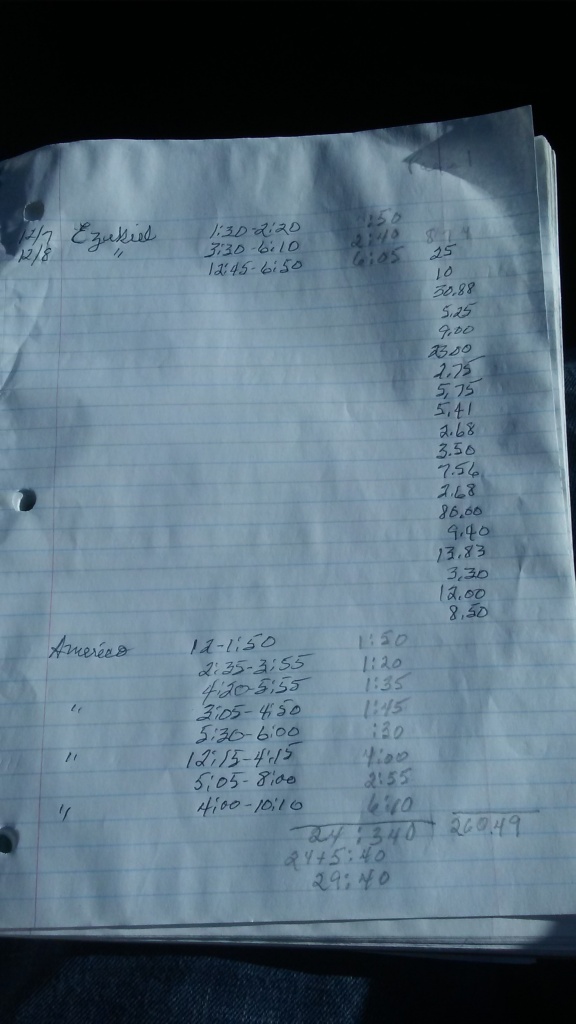 12/7 Ezekiel 1:30-2:20 :50
12/8 " 3:30-6:10 2:40
12:45-6:50 6:05 25
10
30.88
5.25
9.00
23.00
2.75
5.75
5.41
2.68
3.50
7.56
2.68
80.00
9.40
13.83
3.30
12.00
8.50
Américo 12-1:50 1:50
2:35-3:55 1:20
4:20-5:55 1:35
" 3:05-4:50 1:45
5:30-6:00 :30
" 12:15-4:15 4:00
5:05-8:00 2:55
" 4:00-10:10 6:10
24:340 260.49
24+5:40
29:40